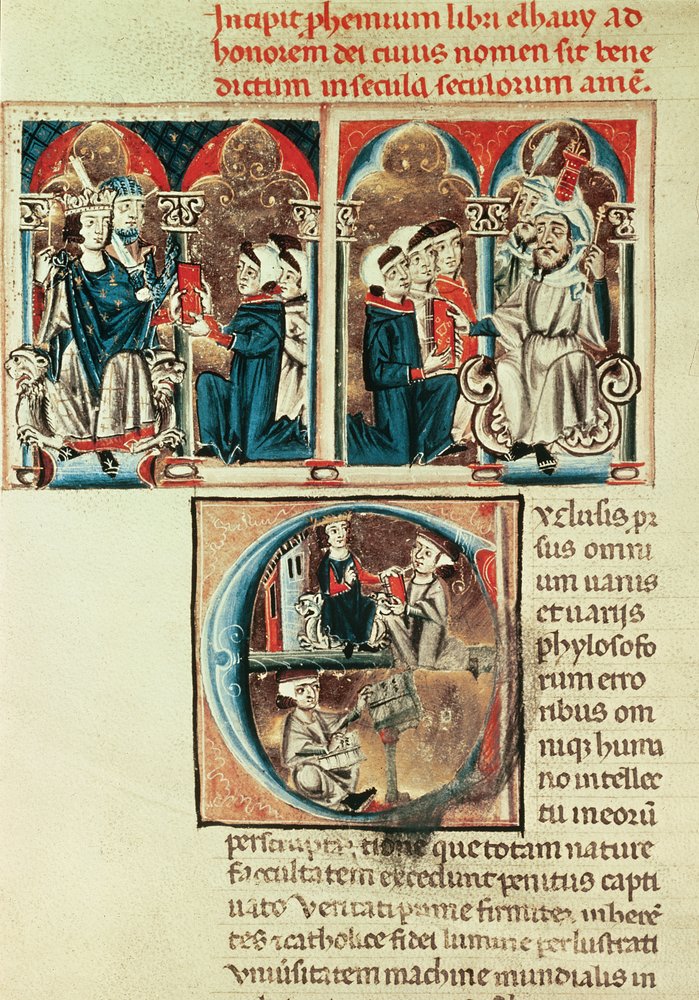 Incipit phemium libri elhavy ad
honorem dei cuius nomen sit bene
dictum in secula seculorum amē.
Exclusis pr
sus omni
um uanis
et uarijs
phylosofo
rum erro
ribus om
niqꝫ huma
no intellec
tu in eorū
que totam nature
faccultatem excedunt penitus capti
uato veritati prime firmiter inherē
tes ⁊ catholice fidei lumine perlustrati
vniūsitatem machine mundialis in